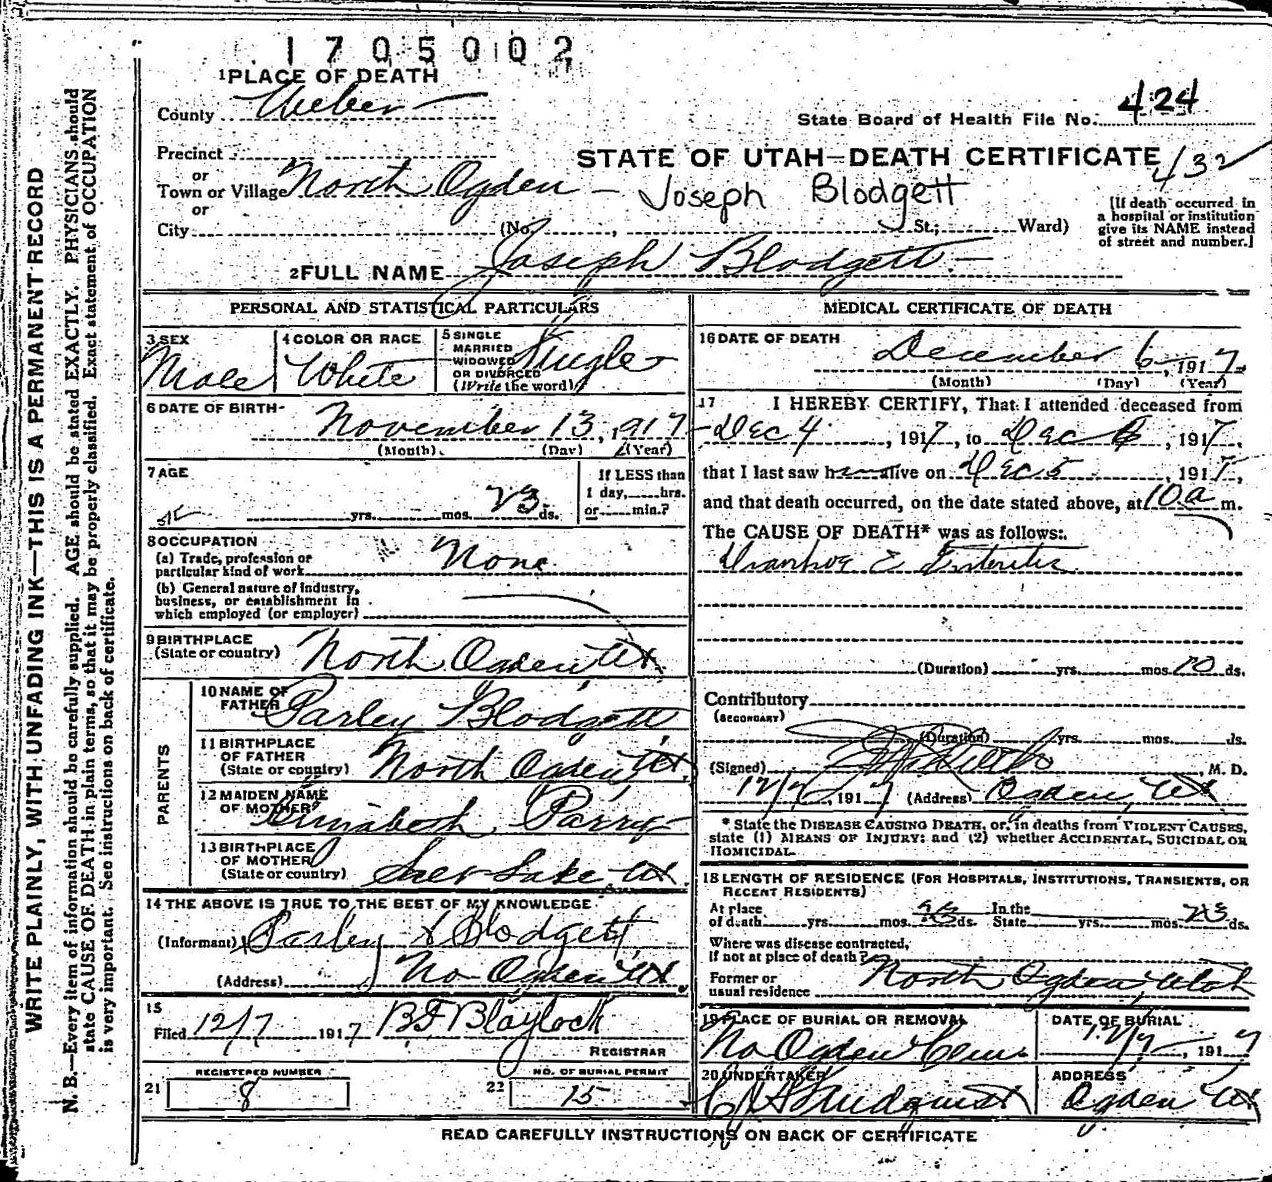 1705002
1 PLACE OF DEATH
County Weber
State Board of Health File No. 424
Precinct
or
Town or Village North Ogden
or
City (No. , St.; Ward)
STATE OF UTAH—DEATH CERTIFICATE 432
Joseph Blodgett
[If death occurred in
a hospital or institution
give its NAME instead
of street and number.]
2 FULL NAME Joseph Blodgett
PERSONAL AND STATISTICAL PARTICULARS
3 SEX
Male
4 COLOR OR RACE
White
5 SINGLE
MARRIED
WIDOWED
OR DIVORCED
(Write the word)
Single
6 DATE OF BIRTH
November 13, 1917
(Month) (Day) (Year)
7 AGE
yrs. mos. 23 ds.
If LESS than
1 day, hrs.
or min.?
8 OCCUPATION
(a) Trade, profession or
particular kind of work None
(b) General nature of industry,
business, or establishment in
which employed (or employer)
9 BIRTHPLACE
(State or country) North Ogden Ut
PARENTS
10 NAME OF
FATHER Parley Blodgett
11 BIRTHPLACE
OF FATHER
(State or country) North Ogden, Ut
12 MAIDEN NAME
OF MOTHER Parry
13 BIRTHPLACE
OF MOTHER
(State or country) Salt Lake Ut
14 THE ABOVE IS TRUE TO THE BEST OF MY KNOWLEDGE
(Informant) Parley Blodgett
(Address) No Ogden Ut
15
Filed 12/7 1917 BF Blaylock
REGISTRAR
21 REGISTERED NUMBER
8
22 NO. OF BURIAL PERMIT
15
MEDICAL CERTIFICATE OF DEATH
16 DATE OF DEATH
December 6, 1917
(Month) (Day) (Year)
17 I HEREBY CERTIFY, That I attended deceased from
Dec 4, 1917, to Dec 6, 1917,
that I last saw h alive on Dec 5 1917,
and that death occurred, on the date stated above, at 10 a m.
The CAUSE OF DEATH* was as follows:
(Duration) yrs. mos. 10 ds.
Contributory
(SECONDARY)
(Duration) yrs. mos. ds.
(Signed) , M. D.
12/7, 1917 (Address) Ogden, Ut
* State the DISEASE CAUSING DEATH, or, in deaths from VIOLENT CAUSES,
state (1) MEANS OF INJURY; and (2) whether ACCIDENTAL, SUICIDAL OR
HOMICIDAL.
18 LENGTH OF RESIDENCE (FOR HOSPITALS, INSTITUTIONS, TRANSIENTS, OR
RECENT RESIDENTS)
At place
of death yrs. mos. 23 ds.
In the
State yrs. mos. 23 ds.
Where was disease contracted,
If not at place of death?
Former or
usual residence North Ogden, Utah
19 PLACE OF BURIAL OR REMOVAL
No Ogden Cem.
DATE OF BURIAL
12/7, 1917
20 UNDERTAKER
ADDRESS
Ogden Ut
READ CAREFULLY INSTRUCTIONS ON BACK OF CERTIFICATE
WRITE PLAINLY, WITH UNFADING INK—THIS IS A PERMANENT RECORD
N. B.—Every item of information should be carefully supplied. AGE should be stated EXACTLY. PHYSICIANS should
state CAUSE OF DEATH in plain terms, so that it may be properly classified. Exact statement of OCCUPATION
is very important. See instructions on back of certificate.